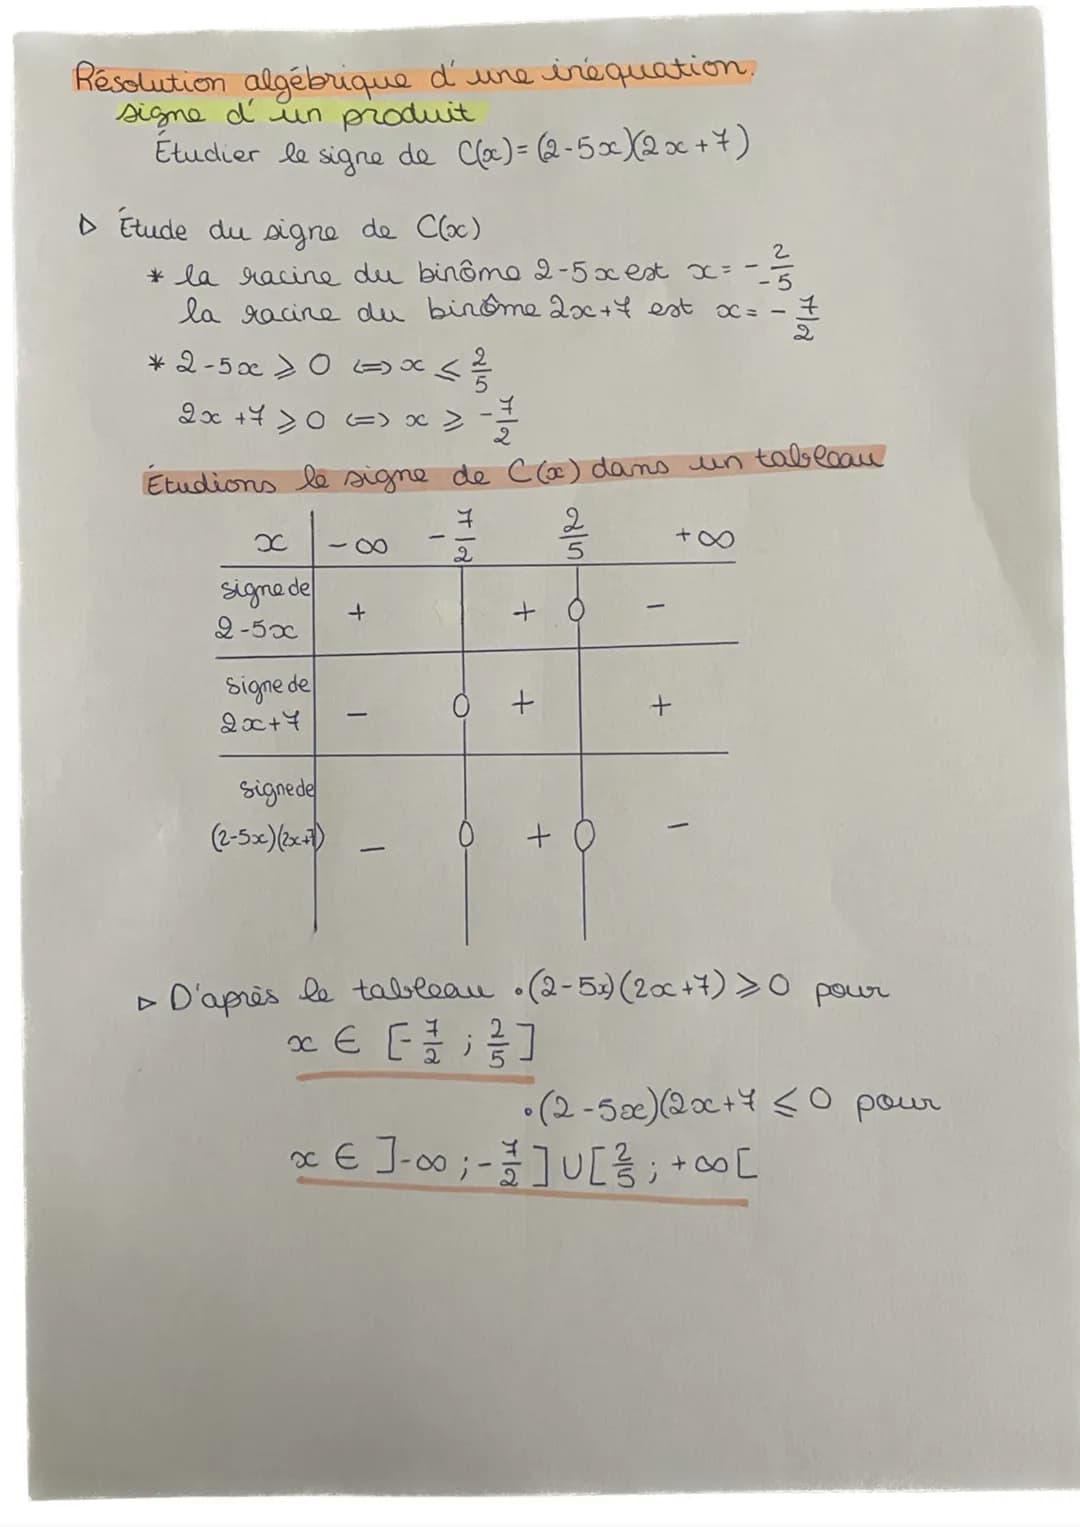 Résolution algébrique d'une inéquation.
signe d'un produit
Étudier le signe de C(x)=(2-5x)(2x+7)
▷ Étude du signe de C(x)
* la racine du binôme 2-5x est x= - 2/-5
la racine du binôme 2x+7 est x= - 7/2
* 2-5x ⩾ 0 <=> x ⩽ 2/5
2x+7 ⩾ 0 <=> x ⩾ -7/2
Étudions le signe de C(x) dans un tableau
x | -∞ -7/2 2/5 +∞
signe de
2-5x + + 0 -
signe de
2x+7 - 0 + +
signe de
(2-5x)(2x+7) - 0 + 0 -
▷ D'après le tableau •(2-5x)(2x+7) ⩾ 0 pour
x ∈ [-7/2 ; 2/5]
•(2-5x)(2x+7 ⩽ 0 pour
x ∈ ]-∞ ; -7/2] U [2/5 ; +∞[